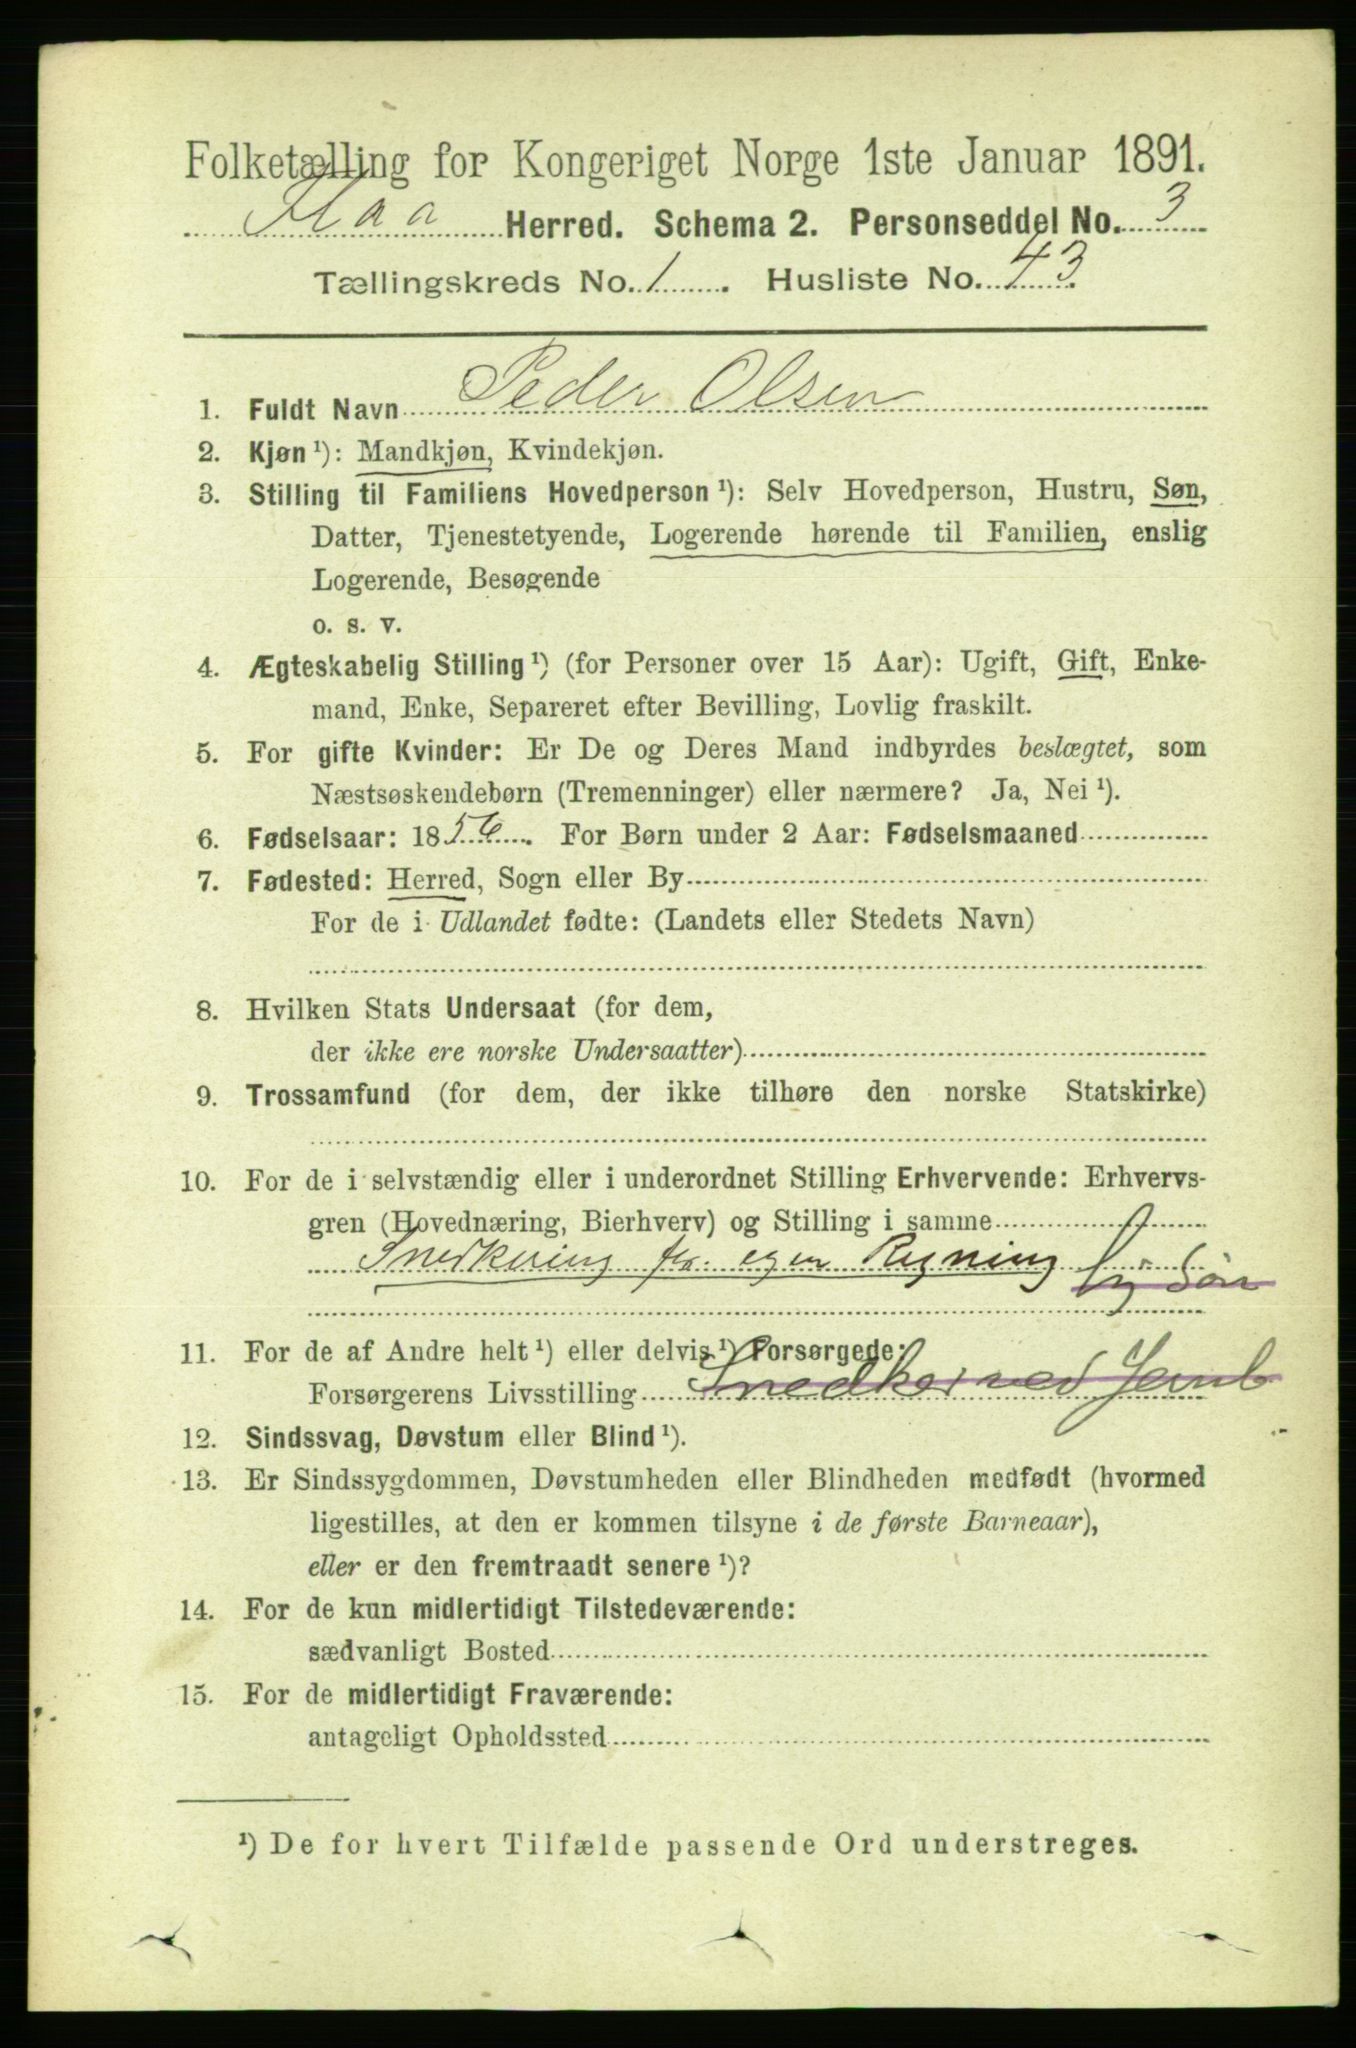 Folketælling for Kongeriget Norge 1ste Januar 1891.
Flaa Herred. Schema 2. Personseddel No. 3
Tællingskreds No. 1. Husliste No. 43.
1. Fuldt Navn Peder Olsen
2. Kjøn¹): Mandkjøn, Kvindekjøn.
3. Stilling til Familiens Hovedperson¹): Selv Hovedperson, Hustru, Søn,
Datter, Tjenestetyende, Logerende hørende til Familien, enslig
Logerende, Besøgende
o. s. v.
4. Ægteskabelig Stilling¹) (for Personer over 15 Aar): Ugift, Gift, Enke-
mand, Enke, Separeret efter Bevilling, Lovlig fraskilt.
5. For gifte Kvinder: Er De og Deres Mand indbyrdes beslægtet, som
Næstsøskendebørn (Tremenninger) eller nærmere? Ja, Nei¹).
6. Fødselsaar: 1856. For Børn under 2 Aar: Fødselsmaaned
7. Fødested: Herred, Sogn eller By
For de i Udlandet fødte: (Landets eller Stedets Navn)
8. Hvilken Stats Undersaat (for dem,
der ikke ere norske Undersaatter)
9. Trossamfund (for dem, der ikke tilhøre den norske Statskirke)
10. For de i selvstændig eller i underordnet Stilling Erhvervende: Erhvervs-
gren (Hovednæring, Bierhverv) og Stilling i samme
Snedkering for egen Regning
11. For de af Andre helt¹) eller delvis¹) Forsørgede:
Forsørgerens Livsstilling Snedker ved Jernb
12. Sindssvag, Døvstum eller Blind¹).
13. Er Sindssygdommen, Døvstumheden eller Blindheden medfødt (hvormed
ligestilles, at den er kommen tilsyne i de første Barneaar),
eller er den fremtraadt senere¹)?
14. For de kun midlertidigt Tilstedeværende:
sædvanligt Bosted
15. For de midlertidigt Fraværende:
antageligt Opholdssted
¹) De for hvert Tilfælde passende Ord understreges.